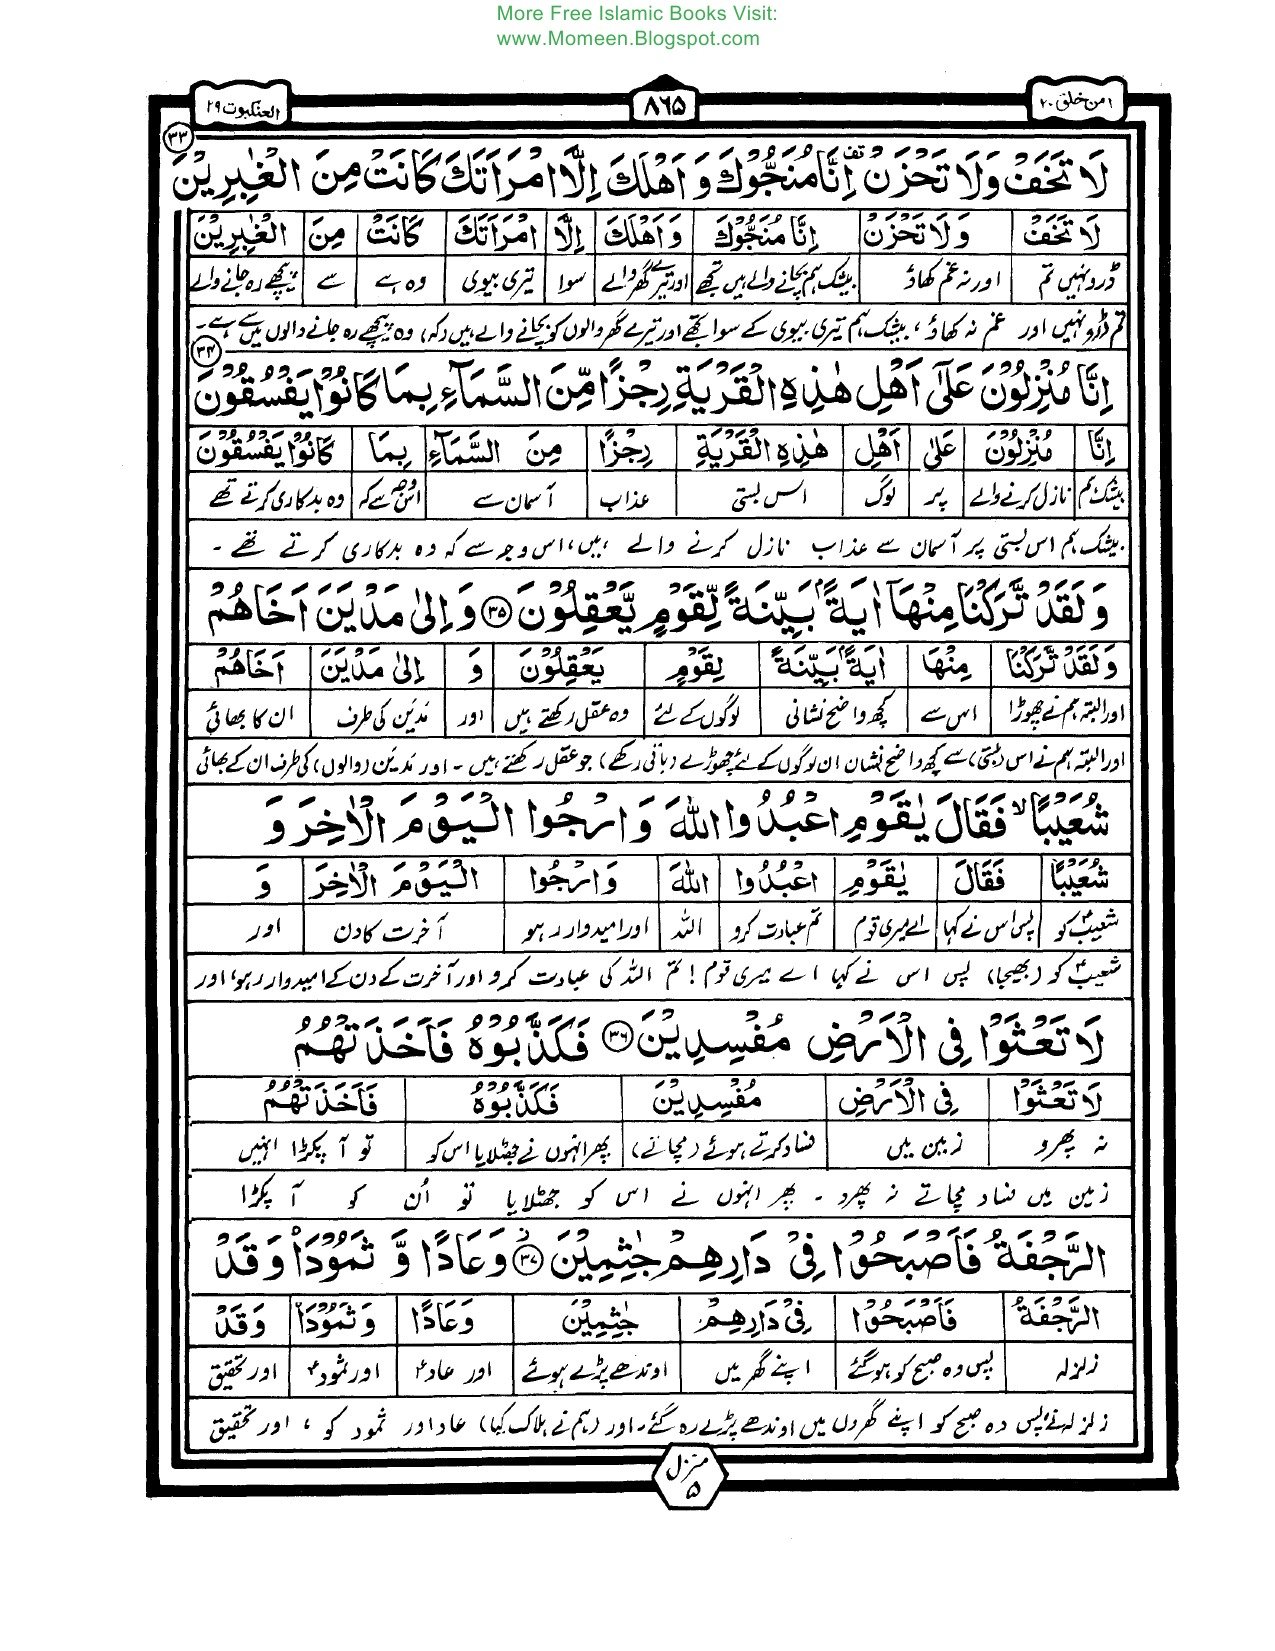 More Free Islamic Books Visit:
www.Momeen.Blogspot.com
امن خلق ٢٠
٨٦٥
العنكبوت ٢٩
لَا تَخَفْ وَلَا تَحْزَنْ اِنَّا مُنَجُّوْكَ وَ اَهْلَكَ اِلَّا امْرَاَتَكَ كَانَتْ مِنَ الْغٰبِرِيْنَ ٣٣
لَا تَخَفْ وَلَا تَحْزَنْ اِنَّا مُنَجُّوْكَ وَاَهْلَكَ اِلَّا امْرَاَتَكَ كَانَتْ مِنَ الْغٰبِرِيْنَ
ڈرو نہیں تم اور نہ غم کھاؤ بیشک ہم بچانے والے ہیں تجھے اور تیرے گھر والے سوا تیری بیوی وہ ہے سے پیچھے رہ جانے والے
تم ڈرو نہیں اور غم نہ کھاؤ ، بیشک ہم تیری بیوی کے سوا تجھے اور تیرے گھر والوں کو بچانے والے ہیں (کہ) وہ پیچھے رہ جانے والوں میں سے ہے۔
اِنَّا مُنْزِلُوْنَ عَلٰٓى اَهْلِ هٰذِهِ الْقَرْيَةِ رِجْزًا مِّنَ السَّمَآءِ بِمَا كَانُوْا يَفْسُقُوْنَ ٣٤
اِنَّا مُنْزِلُوْنَ عَلٰى اَهْلِ هٰذِهِ الْقَرْيَةِ رِجْزًا مِنَ السَّمَآءِ بِمَا كَانُوْا يَفْسُقُوْنَ
بیشک ہم نازل کرنے والے پر لوگ اس بستی عذاب آسمان سے اس وجہ سے کہ وہ بدکاری کرتے تھے
بیشک ہم اس بستی پر آسمان سے عذاب نازل کرنے والے ہیں، اس وجہ سے کہ وہ بدکاری کرتے تھے ۔
وَ لَقَدْ تَّرَكْنَا مِنْهَآ اٰيَةًۢ بَيِّنَةً لِّقَوْمٍ يَّعْقِلُوْنَ ٣٥ وَ اِلٰى مَدْيَنَ اَخَاهُمْ
وَلَقَدْ تَّرَكْنَا مِنْهَا اٰيَةًۢ بَيِّنَةً لِقَوْمٍ يَعْقِلُوْنَ وَ اِلٰى مَدْيَنَ اَخَاهُمْ
اور البتہ ہم نے چھوڑا اس سے کچھ واضح نشانی لوگوں کے لئے وہ عقل رکھتے ہیں اور مدین کی طرف ان کا بھائی
اور البتہ ہم نے اس (بستی) سے کچھ واضح نشان ان لوگوں کے لئے چھوڑے (باقی رکھے) جو عقل رکھتے ہیں ۔ اور مدین (والوں) کی طرف ان کے بھائی
شُعَيْبًا ۙ فَقَالَ يٰقَوْمِ اعْبُدُوا اللّٰهَ وَ ارْجُوا الْيَوْمَ الْاٰخِرَ وَ
شُعَيْبًا فَقَالَ يٰقَوْمِ اعْبُدُوا اللّٰهَ وَارْجُوا الْيَوْمَ الْاٰخِرَ وَ
شعیبؑ کو پس اس نے کہا اے میری قوم تم عبادت کرو اللہ اور امیدوار رہو آخرت کا دن اور
شعیبؑ کو (بھیجا) پس اس نے کہا اے میری قوم ! تم اللہ کی عبادت کرو اور آخرت کے دن کے امیدوار رہو، اور
لَا تَعْثَوْا فِى الْاَرْضِ مُفْسِدِيْنَ ٣٦ فَكَذَّبُوْهُ فَاَخَذَتْهُمُ
لَا تَعْثَوْا فِى الْاَرْضِ مُفْسِدِيْنَ فَكَذَّبُوْهُ فَاَخَذَتْهُمُ
نہ پھرو زمین میں فساد کرتے ہوئے (مچاتے) پھر انہوں نے جھٹلایا اس کو تو آ پکڑا انہیں
زمین میں فساد مچاتے نہ پھرو ۔ پھر انہوں نے اس کو جھٹلایا تو اُن کو آ پکڑا
الرَّجْفَةُ فَاَصْبَحُوْا فِىْ دَارِهِمْ جٰثِمِيْنَ ٣٧ وَ عَادًا وَّ ثَمُوْدَا۟ وَقَدْ
الرَّجْفَةُ فَاَصْبَحُوْا فِىْ دَارِهِمْ جٰثِمِيْنَ وَعَادًا وَثَمُوْدَا۟ وَقَدْ
زلزلہ پس وہ صبح کو ہو گئے اپنے گھر میں اوندھے پڑے ہوئے اور عاد اور ثمود اور تحقیق
زلزلہ نے، پس وہ صبح کو اپنے گھروں میں اوندھے پڑے رہ گئے۔ اور (ہم نے ہلاک کیا) عاد اور ثمود کو ، اور تحقیق
منزل ٥